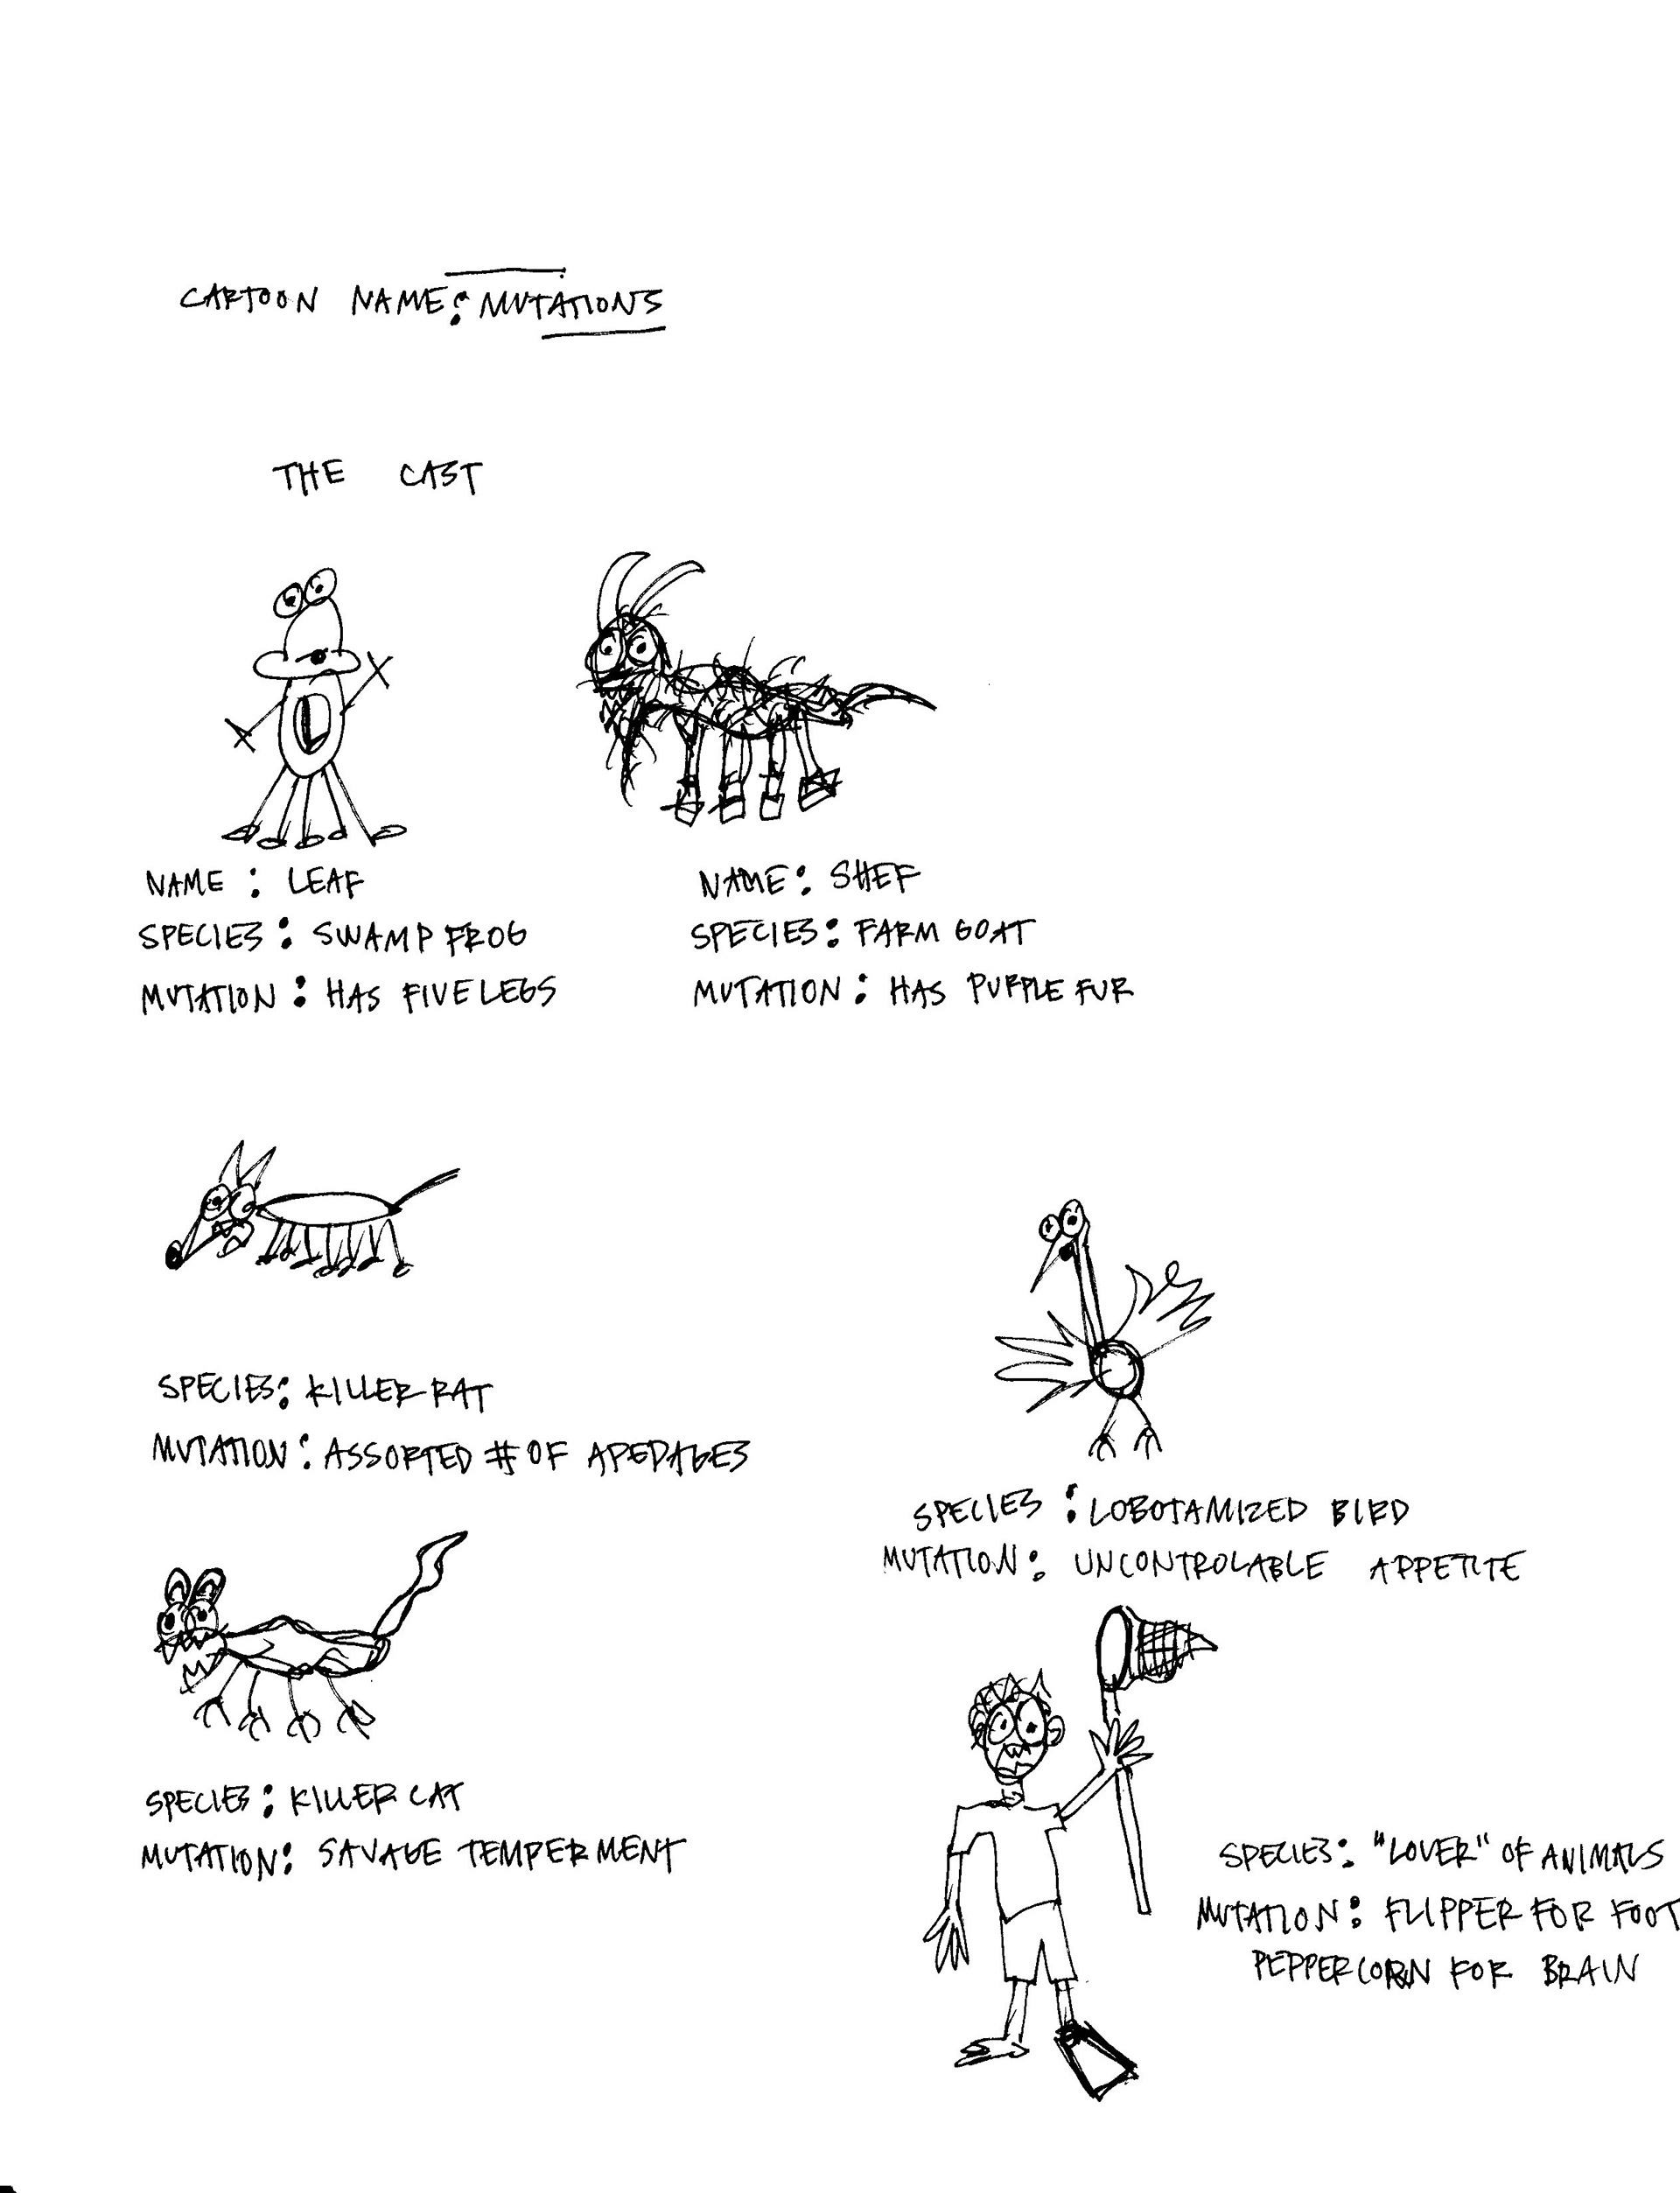 CARTOON NAME: MUTATIONS
THE CAST
L
NAME: LEAF
SPECIES: SWAMP FROG
MUTATION: HAS FIVE LEGS
NAME: SHEF
SPECIES: FARM GOAT
MUTATION: HAS PURPLE FUR
SPECIES: KILLER RAT
MUTATION: ASSORTED # OF APEDAGES
SPECIES: LOBOTAMIZED BIRD
MUTATION: UNCONTROLABLE APPETITE
SPECIES: KILLER CAT
MUTATION: SAVAGE TEMPERMENT
SPECIES: "LOVER" OF ANIMALS
MUTATION: FLIPPER FOR FOOT
PEPPERCORN FOR BRAIN